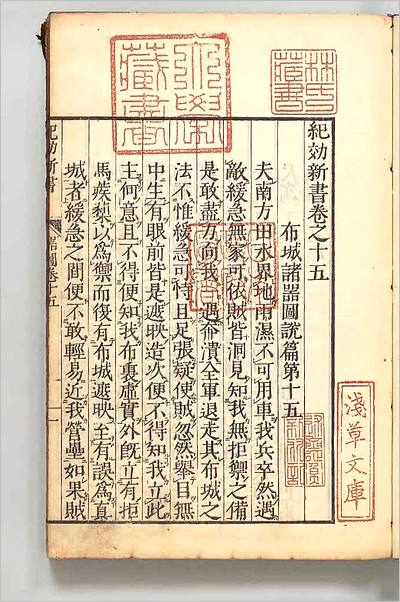 大學
藏書
林氏
藏書
紀効新書卷之十五
布城諸噐圖說篇第十五
夫南方田水界地雨濕不可用車我兵卒然遇
敵緩急無家可依賊皆洞見知我無拒禦之備
是敢盡力向我一遇奔潰全軍退走其布城之
法不惟緩急可恃且足張疑使賊忽然舉目無
中生有眼前皆是遮映造次便不得知我立此
主何意且不得便知我布裏虛實外旣立有拒
馬蒺蔾以爲禦而後有布城遮映至有誤爲真
城者緩急之間便不敢輕易近我營壘如果賊
淺草文庫
紀効新書
卷十五